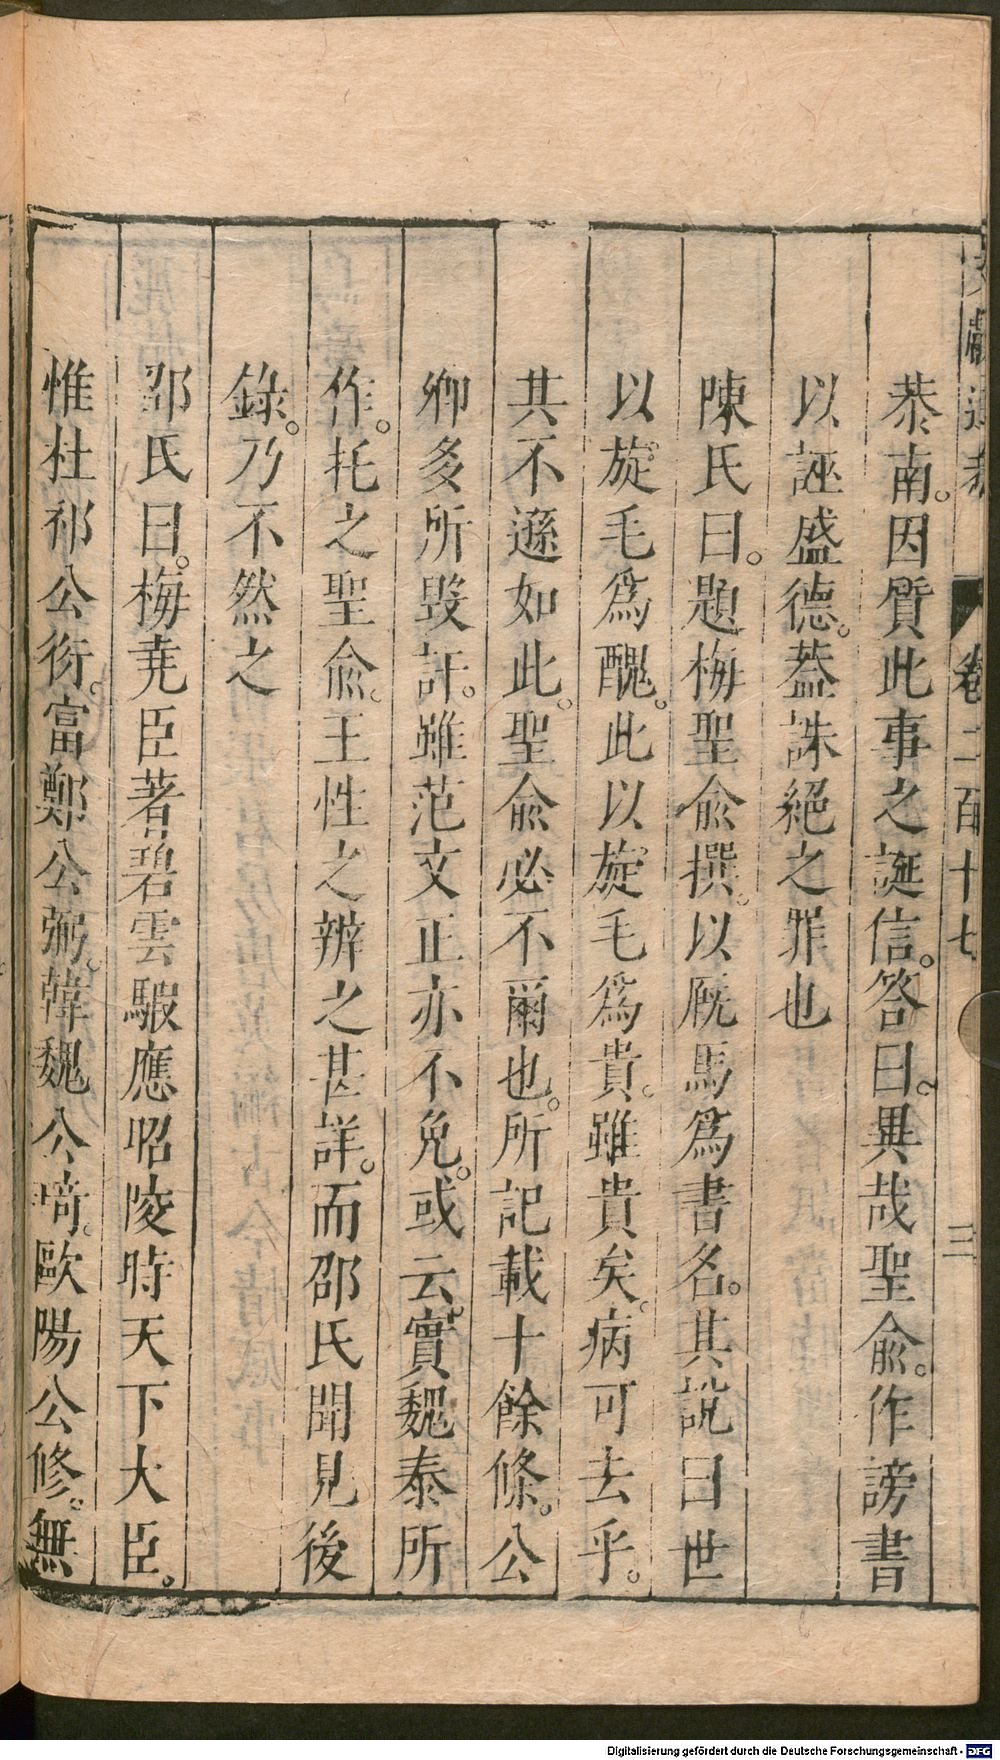 恭南。因質此事之誕信。答曰。異哉聖俞。作謗書
以誣盛德。蓋誅絕之罪也
陳氏曰。題梅聖俞撰。以厩馬爲書名。其說曰世
以旋毛爲醜。此以旋毛爲貴。雖貴矣。病可去乎。
其不遜如此。聖俞必不爾也。所記載十餘條。公
卿多所毀訐。雖范文正亦不免。或云。實魏泰所
作。托之聖俞。王性之辨之甚詳。而邵氏聞見後
錄。乃不然之
邵氏曰。梅堯臣著碧雲騢應昭陵時天下大臣。
惟杜祁公衍。富鄭公弼。韓魏公琦。歐陽公修。無
卷二百十七
三
Digitalisierung gefördert durch die Deutsche Forschungsgemeinschaft - DFG